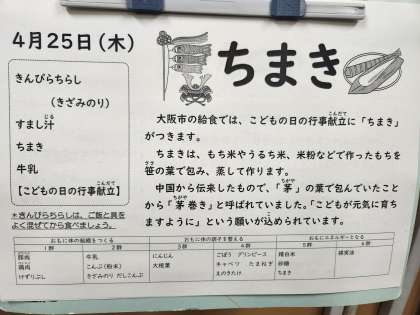 4月25日(木)
ちまき
きんぴらちらし
(きざみのり)
すまし汁
ちまき
牛乳
【こどもの日の行事献立】
*きんぴらちらしは、ご飯と具を
よく混ぜてから食べましょう。
大阪市の給食では、こどもの日の行事献立に「ちまき」
がつきます。
ちまきは、もち米やうるち米、米粉などで作ったもちを
笹の葉で包み、蒸して作ります。
中国から伝来したもので、「茅」の葉で包んでいたこと
から「茅巻き」と呼ばれていました。「こどもが元気に育ち
ますように」という願いが込められています。
おもに体の組織をつくる おもに体の調子を整える おもにエネルギーとなる
1群 2群 3群 4群 5群 6群
豚肉 牛乳 にんじん ごぼう グリンピース 精白米 綿実油
鶏肉 こんぶ(粉末) 大根葉 キャベツ たまねぎ 砂糖
けずりぶし きざみのり だしこんぶ えのきたけ ちまき